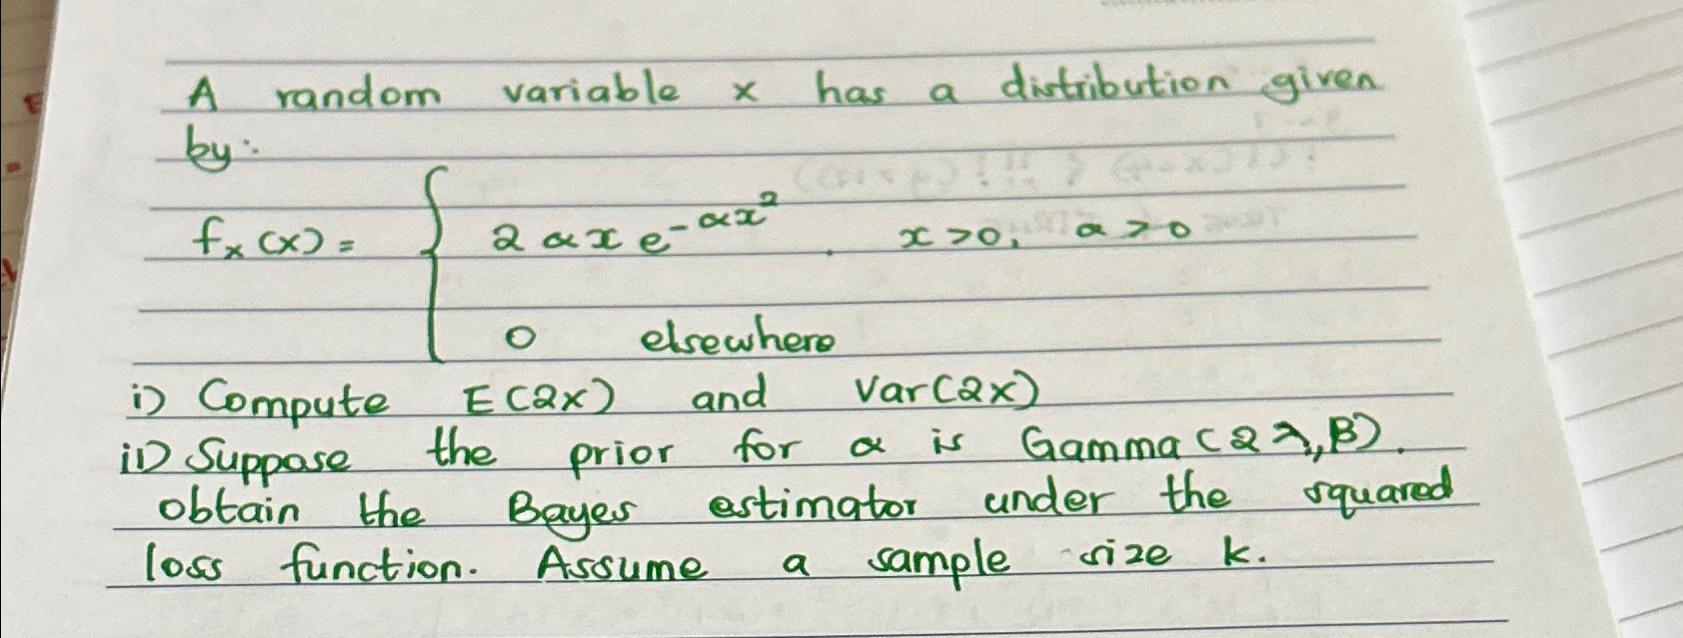 A random variable x has a distribution given
by:
fx(x) = { 2αx e^-αx², x>0, α>0
0 elsewhere
i) Compute E(2x) and Var(2x)
ii) Suppose the prior for α is Gamma(2λ, β).
obtain the Bayes estimator under the squared
loss function. Assume a sample size k.